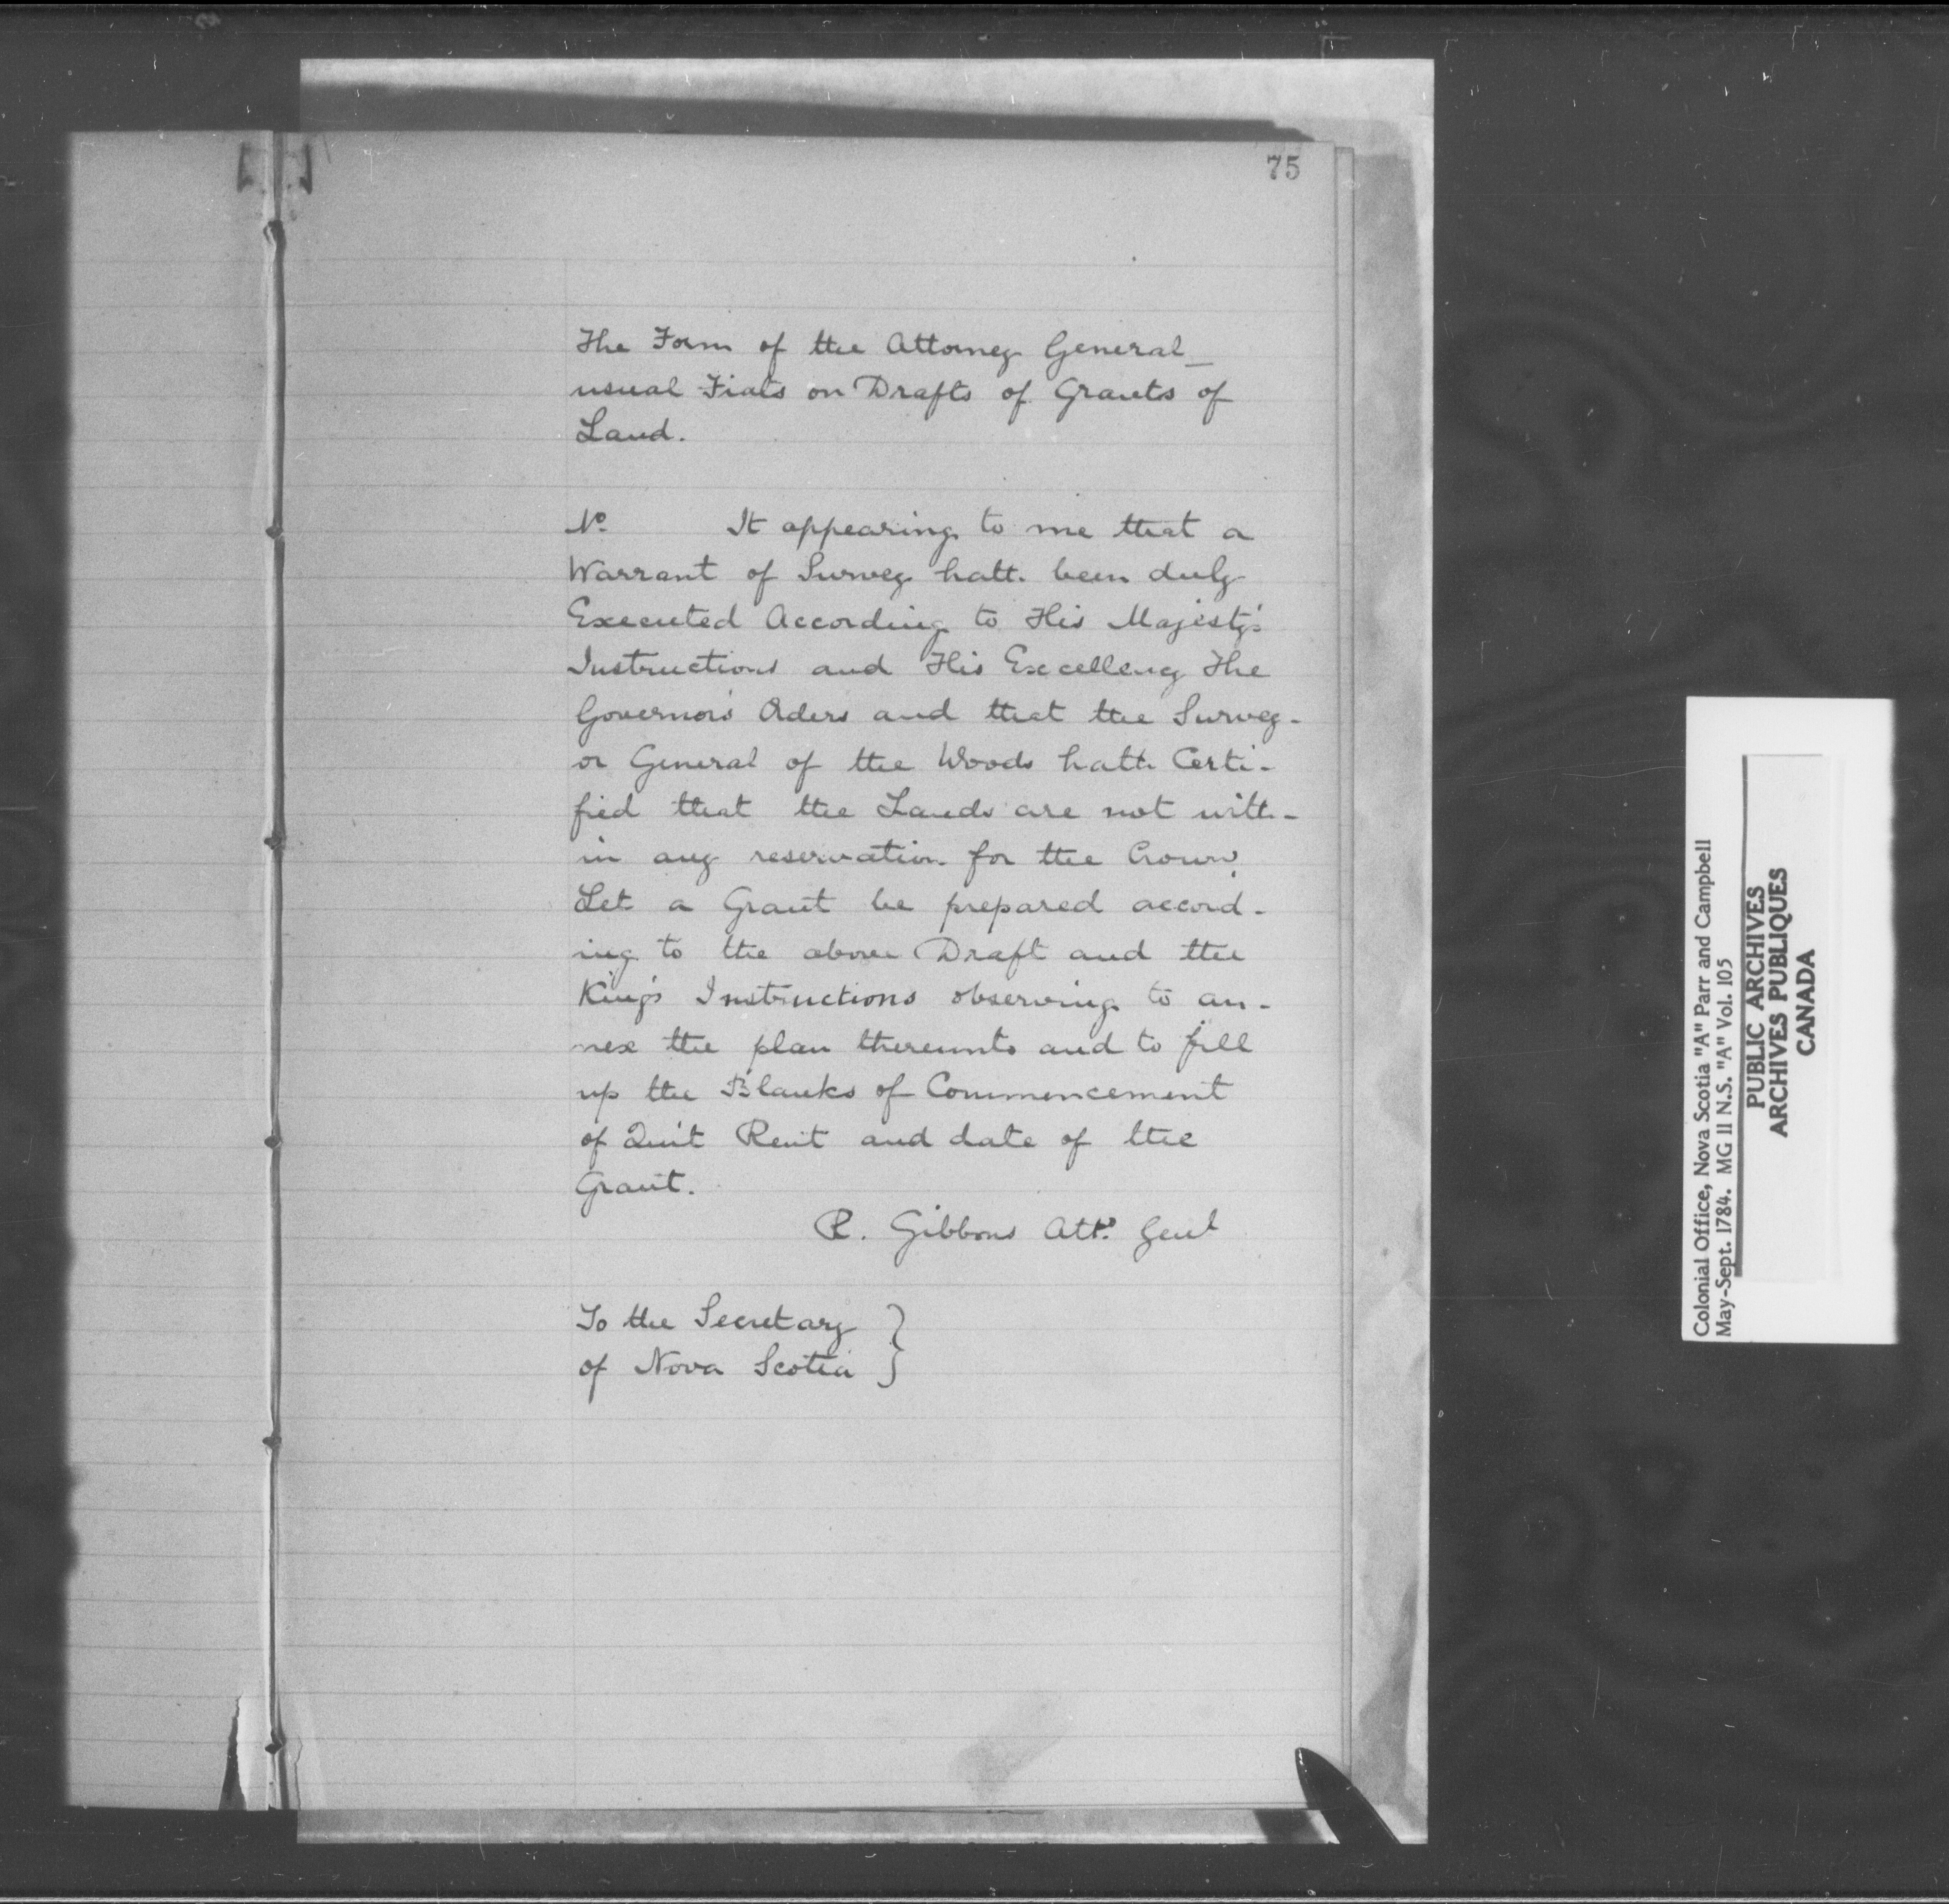 75
The Form of the Attorney General_
usual Fiats on Drafts of Grants of
Land.
No. It appearing to me that a
Warrant of Survey hath been duly
Executed According to His Majesty's
Instructions and His Excellency The
Governor's Orders and that the Survey-
or General of the Woods hath Certi-
fied that the Lands are not with-
in any reservation for the Crown.
Let a Grant be prepared accord-
ing to the above Draft and the
King's Instructions observing to an-
nex the plan thereunto and to fill
up the Blanks of Commencement
of Quit Rent and date of the
Grant.
R. Gibbons Atty. Genl
To the Secretary }
of Nova Scotia }
Colonial Office, Nova Scotia "A" Parr and Campbell
May-Sept. 1784. MG 11 N.S. "A" Vol. 105
PUBLIC ARCHIVES
ARCHIVES PUBLIQUES
CANADA